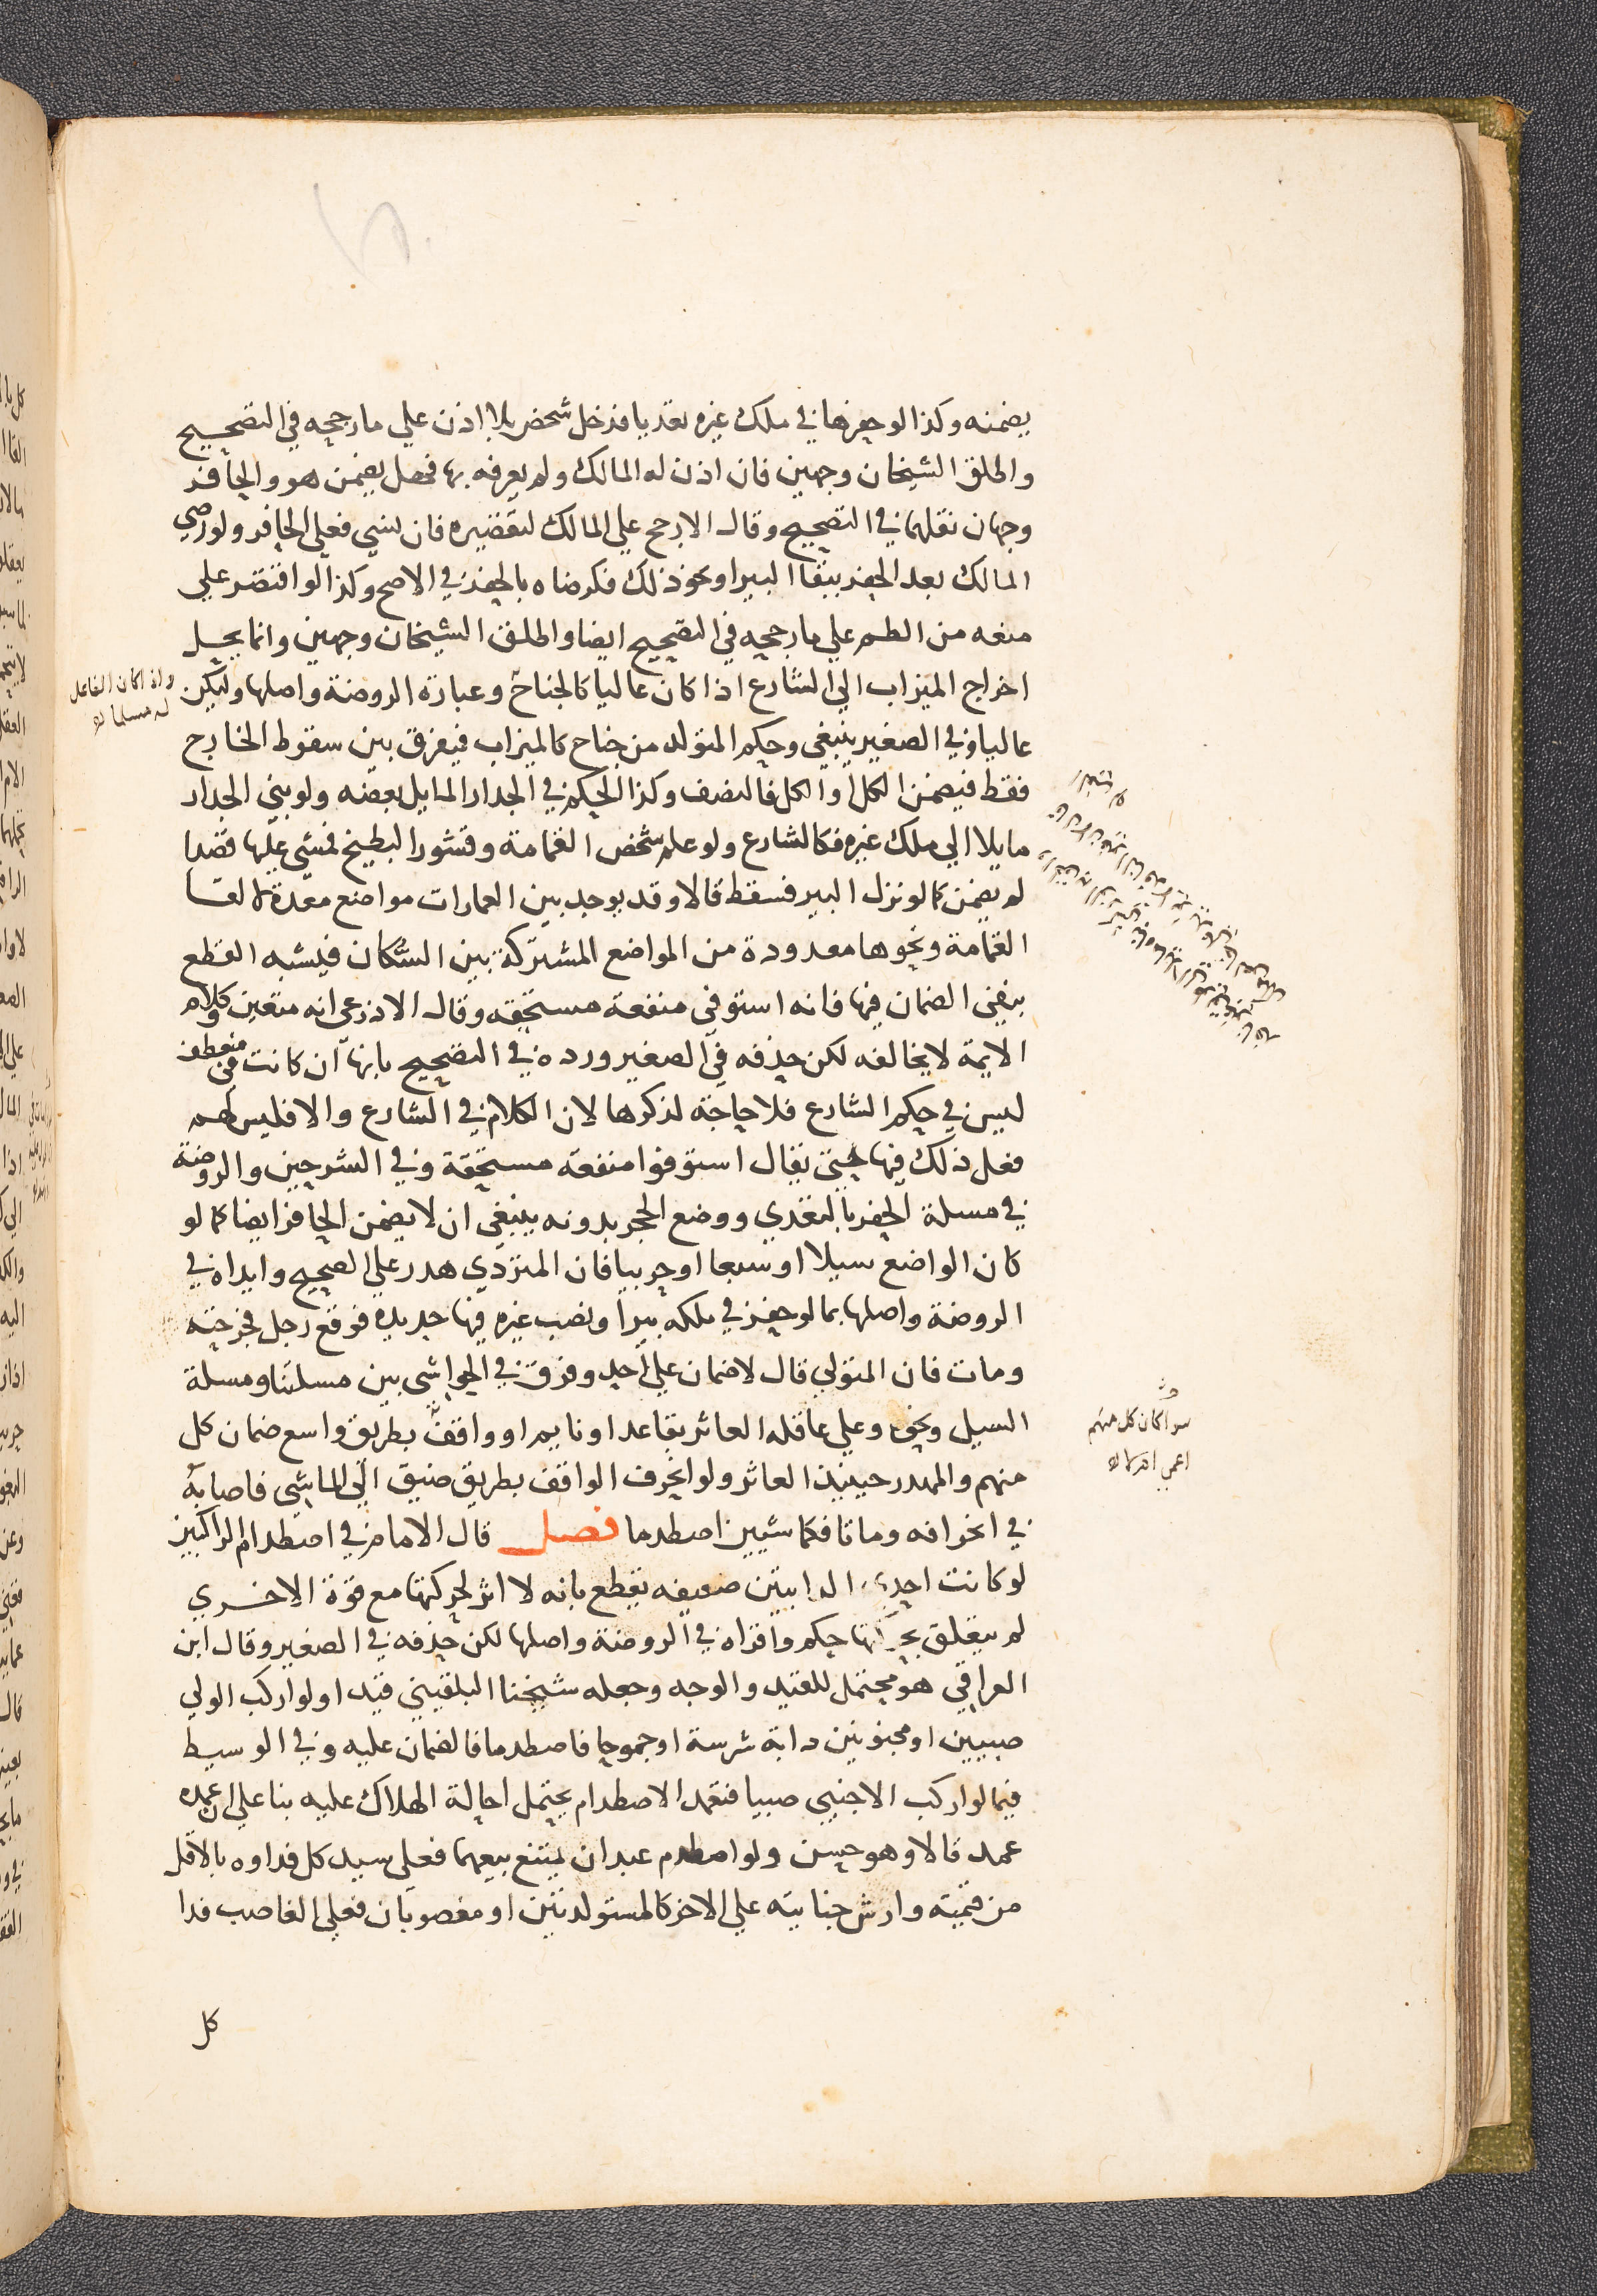 يضمنه وكذا لو حفرها في ملك غيره تعديا فدخل شخص بلا اذن علي ما رجحه في التصحيح
واطلق الشيخان وجهين فان اذن له المالك ولم يعرفه بها فهل يضمن هو والحافر
وجهان نقلهما في التصحيح وقال الارجح علي المالك لتقصيره فان نسي فعلي الحافر ولو رضي
المالك بعد الحفر ببقا البير او نحو ذلك فكرضاه بالحفر في الاصح وكذا لو اقتصر علي
منعه من الطم علي ما رجحه في التصحيح ايضا واطلق الشيخان وجهين وانما يحل
اخراج الميزاب الي الشارع اذا كان عاليا كالجناح وعبارة الروضة واصلها وليكن
عاليا وفي الصغير ينبغي وحكم المتولد من جناح كالميزاب فيفرق بين سقوط الخارج
فقط فيضمن الكل او الكل فالنصف وكذا الحكم في الجدار المايل بعضه ولو بني الجدار
مايلا الي ملك غيره فكالشارع ولو علم شخص القمامة وقشور البطيخ فمشي عليها قصدا
لم يضمن كما لو نزل البير فسقط قالا وقد يوجد بين العمارات مواضع معدة لالقا
القمامة ونحوها معدودة من المواضع المشتركة بين السكان فيشبه القطع
بنفي الضمان فيها فانه استوفي منفعة مستحقه وقال الاذرعي انه متعين وكلام
الايمة لا يخالفه لكن حذفه في الصغير ورده في التصحيح بانها ان كانت في منعطف
ليس في حكم الشارع فلا حاجة لذكرها لان الكلام في الشارع والا فليس لهم
فعل ذلك فيها حتي يقال استوفوا منفعة مستحقة وفي الشرحين والروضة
في مسلة الحفر بالتعدي ووضع الحجر بدونه ينبغي ان لا يضمن الحافر ايضا كما لو
كان الواضع سيلا او سبعا او حربيا فان المتردي هدر علي الصحيح وايداه في
الروضة واصلها بما لو حفر في ملكه بيرا ونصب غيره فيها حديده فوقع رجل فجرحته
ومات فان المتولي قال لا ضمان علي احد وفرق في الحواشي بين مسلتنا ومسلة
السيل ونحوه وعلي عاقلة العاثر بقاعد او نايم او واقف بطريق واسع ضمان كل
منهم والمهدر حينيذ العاثر ولو انحرف الواقف بطريق ضيق الي الماشي فاصابه
في انحرافه وماتا فكماشيين اصطدما فصل قال الامام في اصطدام الراكبين
لو كانت احدي الدابتين ضعيفه نقطع بانه لا اثر لحركتها مع قوة الاخري
لم يتعلق بحركتها حكم واقراه في الروضة واصلها لكن حذفه في الصغير وقال ابن
العراقي هو محتمل للقيد والوجه وجعله شيخنا البلقيني قيدا ولو اركب الولي
صبيين او مجنونين دابة شرسة او جموحا فاصطدما فالضمان عليه وفي الوسيط
فيما لو اركب الاجنبي صبيا فتعمد الاصطدام يحتمل احالة الهلاك عليه بنا علي ان عمده
عمد قالا وهو حسن ولو اصطدم عبدان يمتنع بيعهما فعلي سيد كل فداوه بالاقل
من قيمته وارش جنايته علي الاخر كالمستولدتين او مغصوبان فعلي الغاصب فدا
كل
واذا كان الفاعل
له مسلما
سوا كان كل منهم
اعمي ام لا